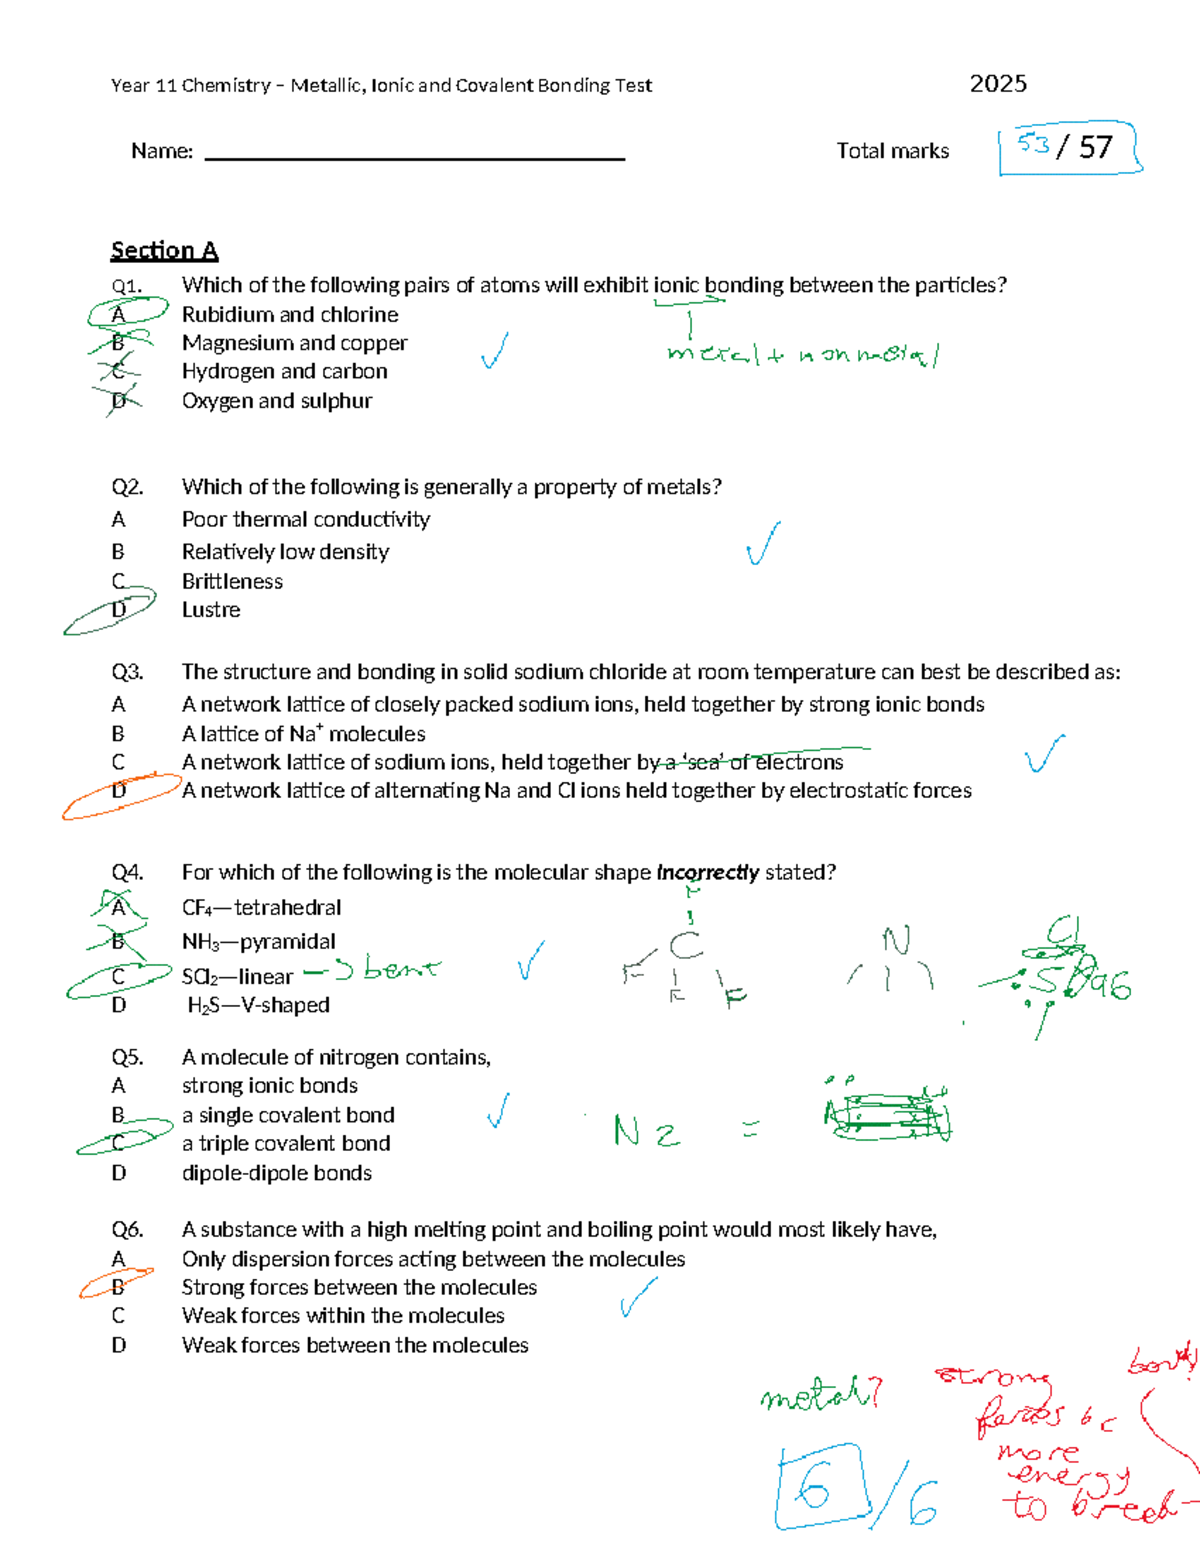 Year 11 Chemistry – Metallic, Ionic and Covalent Bonding Test 2025
Name: Total marks 53 / 57
Section A
Q1. Which of the following pairs of atoms will exhibit ionic bonding between the particles?
A Rubidium and chlorine
B Magnesium and copper
metal + nonmetal
C Hydrogen and carbon
D Oxygen and sulphur
Q2. Which of the following is generally a property of metals?
A Poor thermal conductivity
B Relatively low density
C Brittleness
D Lustre
Q3. The structure and bonding in solid sodium chloride at room temperature can best be described as:
A A network lattice of closely packed sodium ions, held together by strong ionic bonds
B A lattice of Na⁺ molecules
C A network lattice of sodium ions, held together by a ‘sea’ of electrons
D A network lattice of alternating Na and Cl ions held together by electrostatic forces
Q4. For which of the following is the molecular shape Incorrectly stated?
F
A CF₄—tetrahedral
B NH₃—pyramidal
C N Cl
C SCl₂—linear → bent
F F F S
D H₂S—V-shaped
Q5. A molecule of nitrogen contains,
A strong ionic bonds
B a single covalent bond
N2 = N N
C a triple covalent bond
D dipole-dipole bonds
Q6. A substance with a high melting point and boiling point would most likely have,
A Only dispersion forces acting between the molecules
B Strong forces between the molecules
C Weak forces within the molecules
D Weak forces between the molecules
metal?
strong
forces bc
more
energy
to break
6 / 6